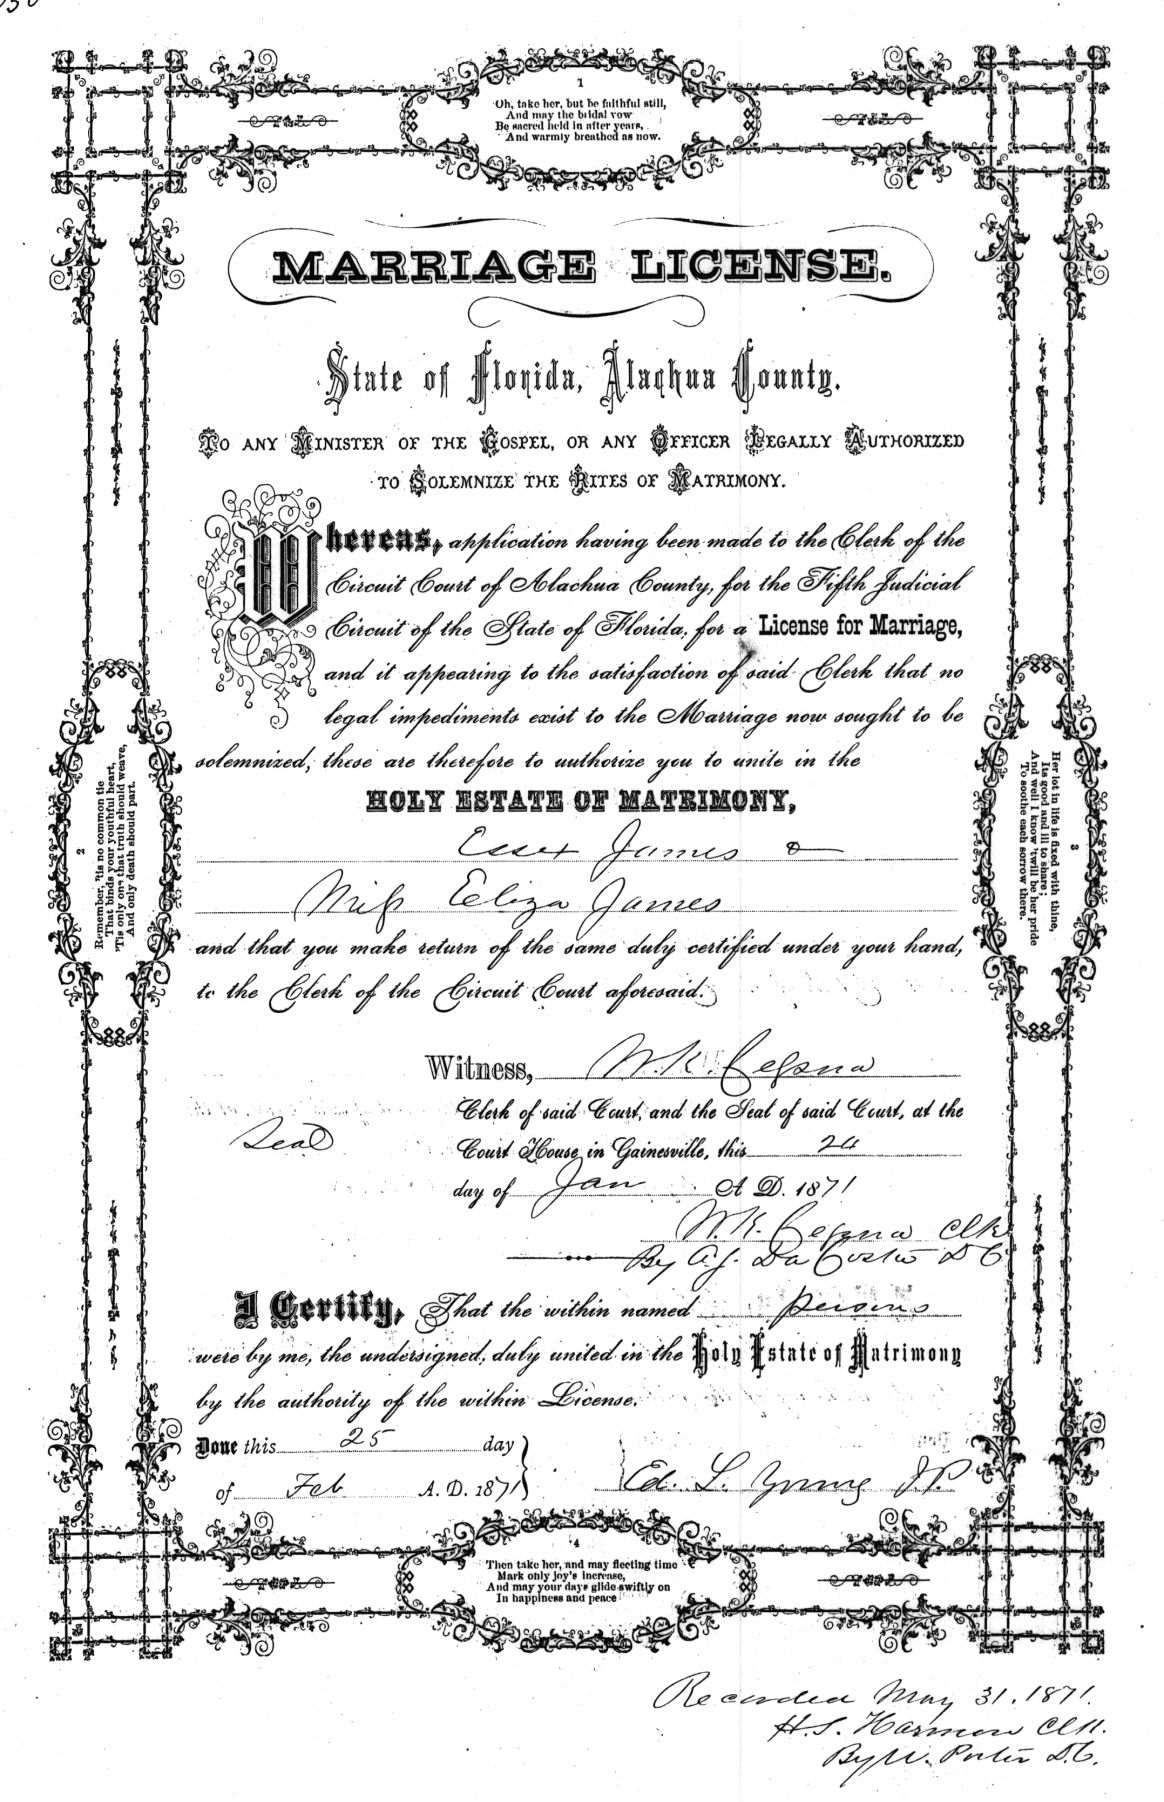 1
Oh, take her, but be faithful still,
And may the bridal vow
Be sacred held in after years,
And warmly breathed as now.
MARRIAGE LICENSE.
State of Florida, Alachua County.
TO ANY MINISTER OF THE GOSPEL, OR ANY OFFICER LEGALLY AUTHORIZED
TO SOLEMNIZE THE RITES OF MATRIMONY.
Whereas, application having been made to the Clerk of the
Circuit Court of Alachua County, for the Fifth Judicial
Circuit of the State of Florida, for a License for Marriage,
and it appearing to the satisfaction of said Clerk that no
legal impediments exist to the Marriage now sought to be
solemnized, these are therefore to authorize you to unite in the
HOLY ESTATE OF MATRIMONY,
Essex James &
Miss Eliza James
and that you make return of the same duly certified under your hand,
to the Clerk of the Circuit Court aforesaid.
2
Remember, 'tis no common tie
That binds your youthful heart,
'Tis only one that truth should weave,
And only death should part.
3
Her lot in life is fixed with thine,
Its good and ill to share;
And well I know 'twill be her pride
To soothe each sorrow there.
Witness, W. K. Cessna
Clerk of said Court, and the Seal of said Court, at the
Seal
Court House in Gainesville, this 24
day of Jan A. D. 1871
W. K. Cessna Clk
By A. J. Da Costa D C
I Certify, That the within named persons
were by me, the undersigned, duly united in the Holy Estate of Matrimony
by the authority of the within License.
Done this 25 day
of Feb A. D. 1871
Ed. L. Young J.P.
4
Then take her, and may fleeting time
Mark only joy's increase,
And may your days glide swiftly on
In happiness and peace
Recorded May 31, 1871.
H. S. Harmon Clk.
By W. Porter D. C.